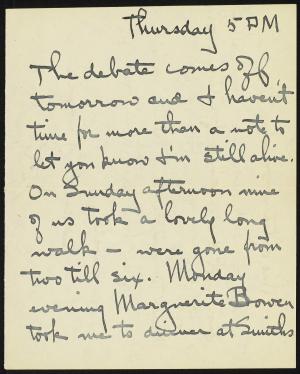 Thursday 5 PM
The debate comes off
tomorrow and I haven't
time for more than a note to
let you know I'm still alive.
On Sunday afternoon nine
of us took a lovely long
walk – were gone from
two till six. Monday
evening Marguerite Bowen
took me to dinner at Smiths